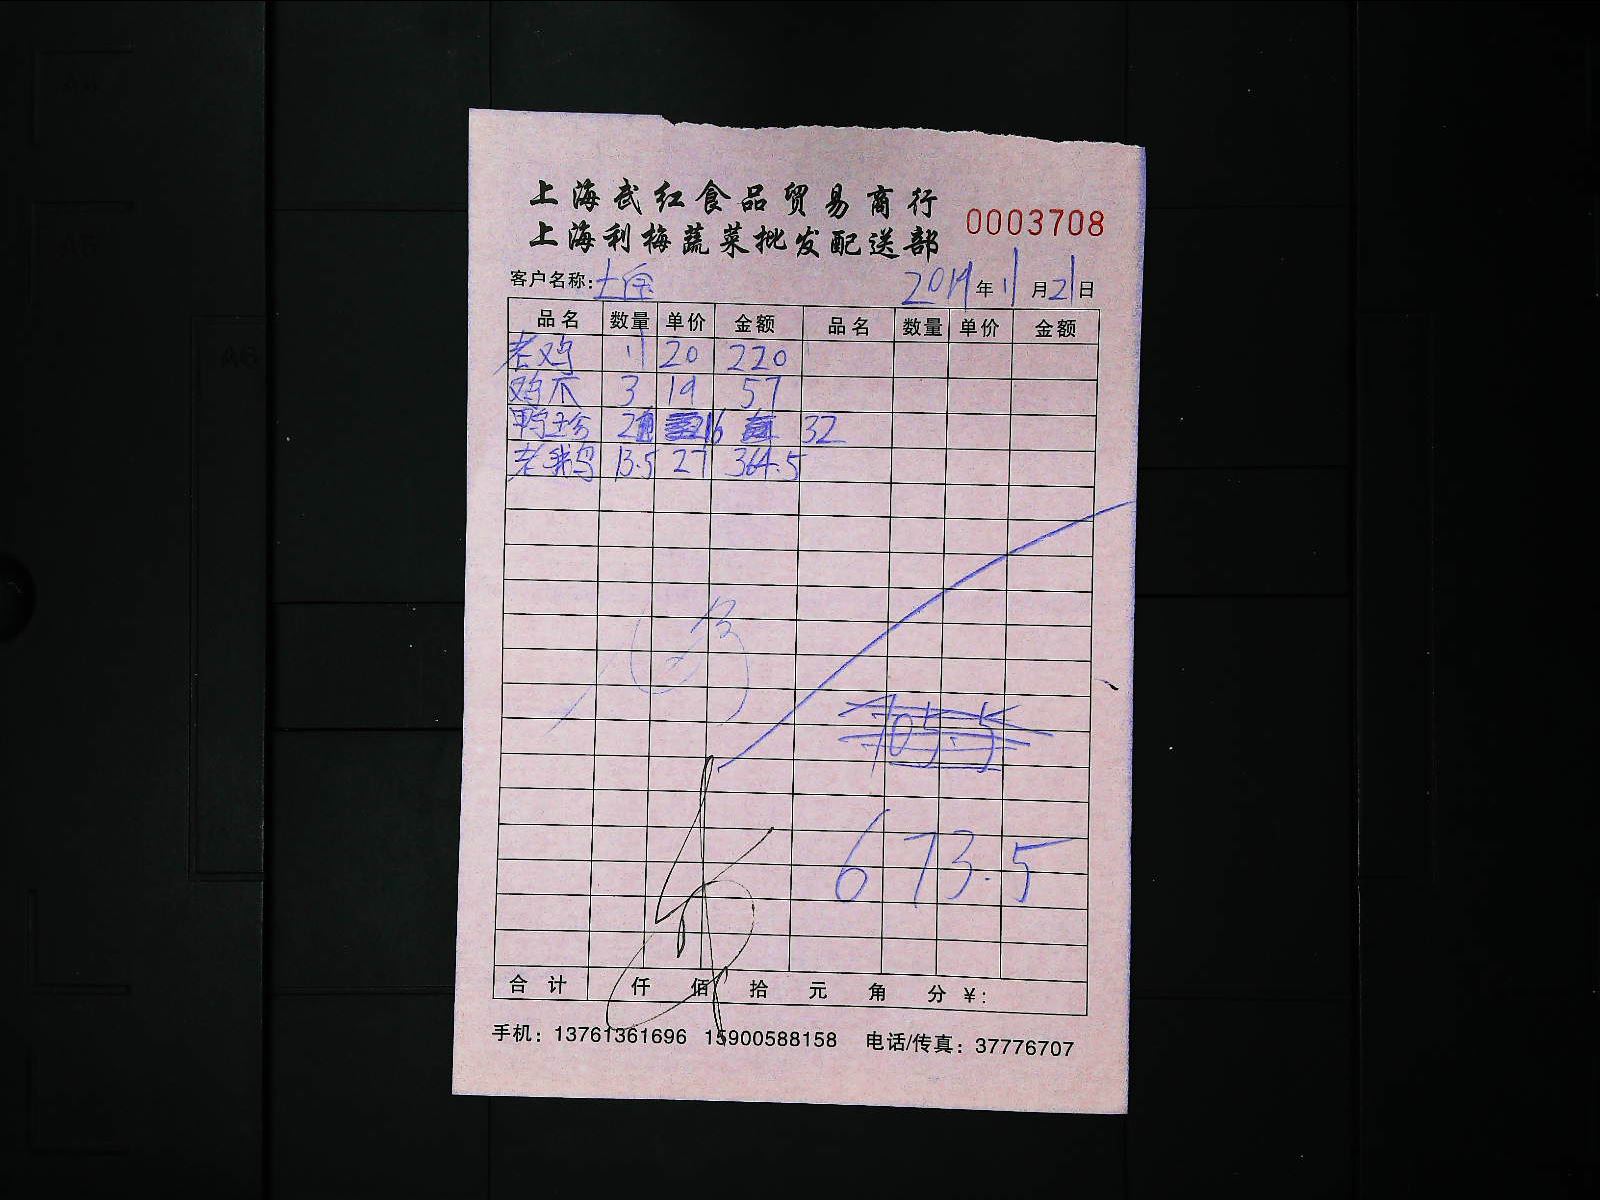 上海武红食品贸易商行
0003708
上海利梅蔬菜批发配送部
客户名称: 年11月21日
品名 数量 单价 金额 品名 数量 单价 金额
老鸡 11 20 220
鸡爪 3 19 57
鸭珍 2 16 32
老鸭 13.5 27 364.5
705.5
673.5
合计 仟 佰 拾 元 角 分 ¥:
手机: 13761361696 15900588158 电话/传真: 37776707